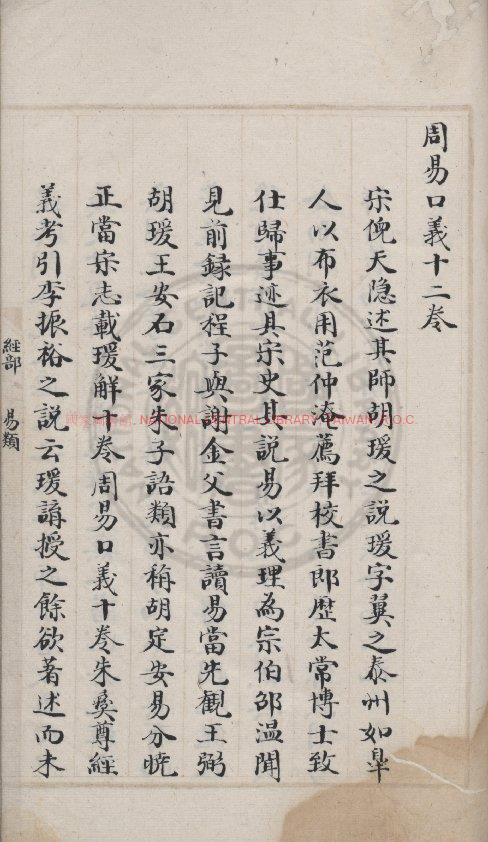 周易口義十二卷
宋倪天隐述其師胡瑗之説瑗字翼之泰州如臯
人以布衣用范仲淹薦拜校書郎歴太常博士致
仕歸事迹具宋史其説易以義理為宗伯邵温聞
見前録記程子與謝金父書言讀易當先觀王弼
胡瑗王安石三家朱子語類亦稱胡定安易分晓
正當宋志載瑗解十卷周易口義十卷朱彝尊經
義考引李振裕之説云瑗講授之餘欲著述而未
經部 易類
國家圖書館 NATIONAL CENTRAL LIBRARY, TAIWAN, R.O.C.